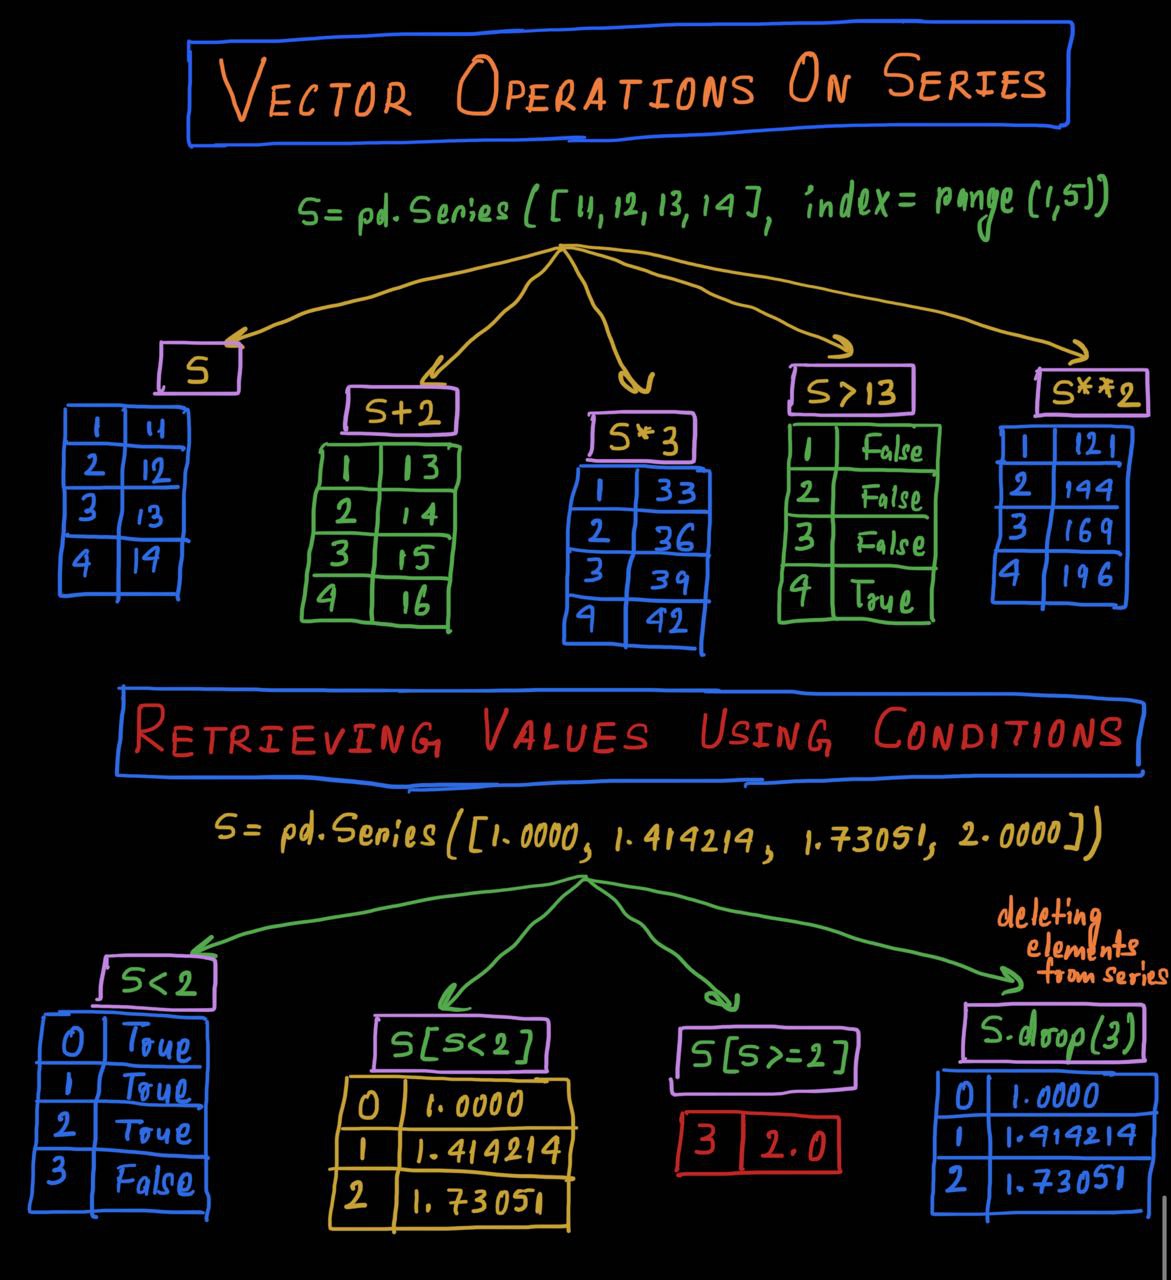 VECTOR OPERATIONS ON SERIES
S= pd.Series([11,12,13,14], index= range(1,5))
S
1 11
2 12
3 13
4 14
S+2
1 13
2 14
3 15
4 16
S*3
1 33
2 36
3 39
4 42
S>13
1 False
2 False
3 False
4 True
S**2
1 121
2 144
3 169
4 196
RETRIEVING VALUES USING CONDITIONS
S= pd.Series([1.0000, 1.414214, 1.73051, 2.0000])
S<2
0 True
1 True
2 True
3 False
S[S<2]
0 1.0000
1 1.414214
2 1.73051
S[S>=2]
3 2.0
deleting
elements
from series
S.drop(3)
0 1.0000
1 1.414214
2 1.73051